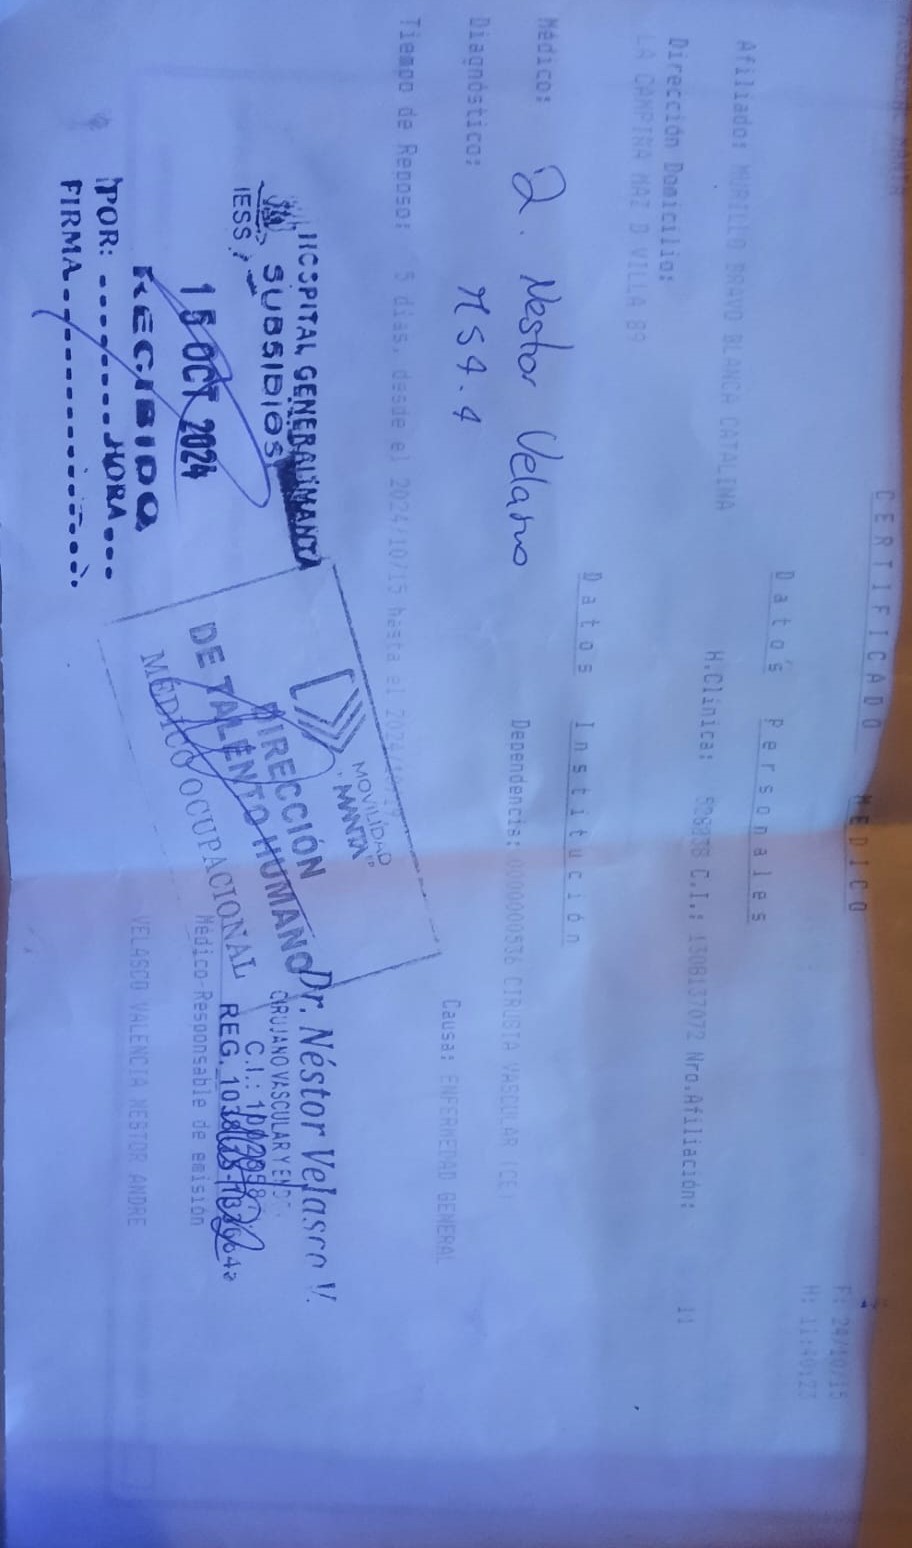 CERTIFICADO MEDICO
F: 24/10/15
H: 11:40:23
Datos Personales
Afiliado: MURILLO BRAVO BLANCA CATALINA
H.Clínica: 528238 C.I.: 1308137072 Nro.Afiliación: 11
Dirección Domicilio:
LA CAMPINA MAZ D VILLA 89
Datos Institución
Médico: Nestor Velasco
Dependencia: 0000000536 CIRUGIA VASCULAR (CE)
Diagnóstico: M54.4
Causa: ENFERMEDAD GENERAL
Tiempo de Reposo: 5 días, desde el 2024/10/15 hasta el 2024/10/19
HOSPITAL GENERAL MANTA
IESS SUBSIDIOS
15 OCT 2024
RECIBIDO
POR: HORA
FIRMA
MOVILIDAD
MANTA
DIRECCIÓN
DE TALENTO HUMANO
MÉDICO OCUPACIONAL
Dr. Néstor Velasco V.
CIRUJANO VASCULAR Y
C.I.:
REG.
Médico-Responsable de emisión
VELASCO VALENCIA NESTOR ANDRE